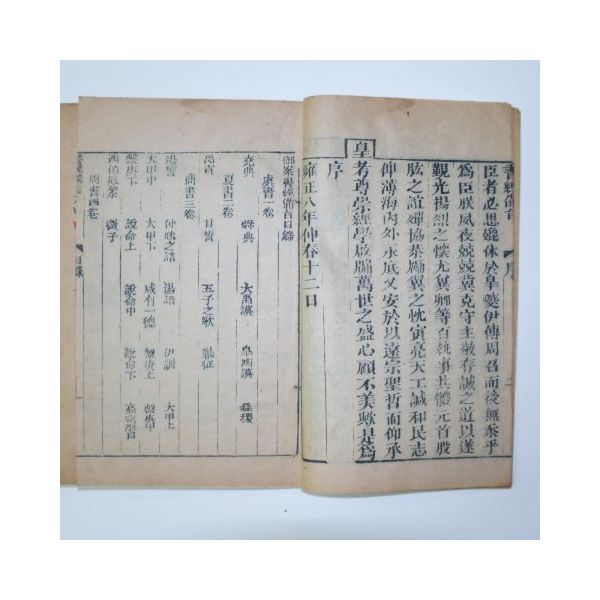 書經備旨
序
二
臣者必思媲休於皐夔伊傅周召而後無忝乎
爲臣朕夙夜兢兢冀克守主敬存誠之道以遂
覲光揚烈之懷尤冀卿等百執事共體元首股
肱之誼嬋協恭勵翼之忱寅亮天工諴和民志
仰溥海內外永底乂安於以遠宗聖哲而仰承
皇考尊崇經學啟牖萬世之盛心顧不美歟是爲
序
雍正八年仲春十二日
御案書經備旨目錄
虞書一卷
堯典 舜典 大禹謨 皐陶謨 益稷
夏書二卷
禹貢 甘誓 五子之歌 胤征
商書三卷
湯誓 仲虺之誥 湯誥 伊訓 太甲上
太甲中 太甲下 咸有一德 盤庚上 盤庚中
盤庚下 說命上 說命中 說命下 高宗肜日
西伯戡黎 微子
周書四卷
目錄